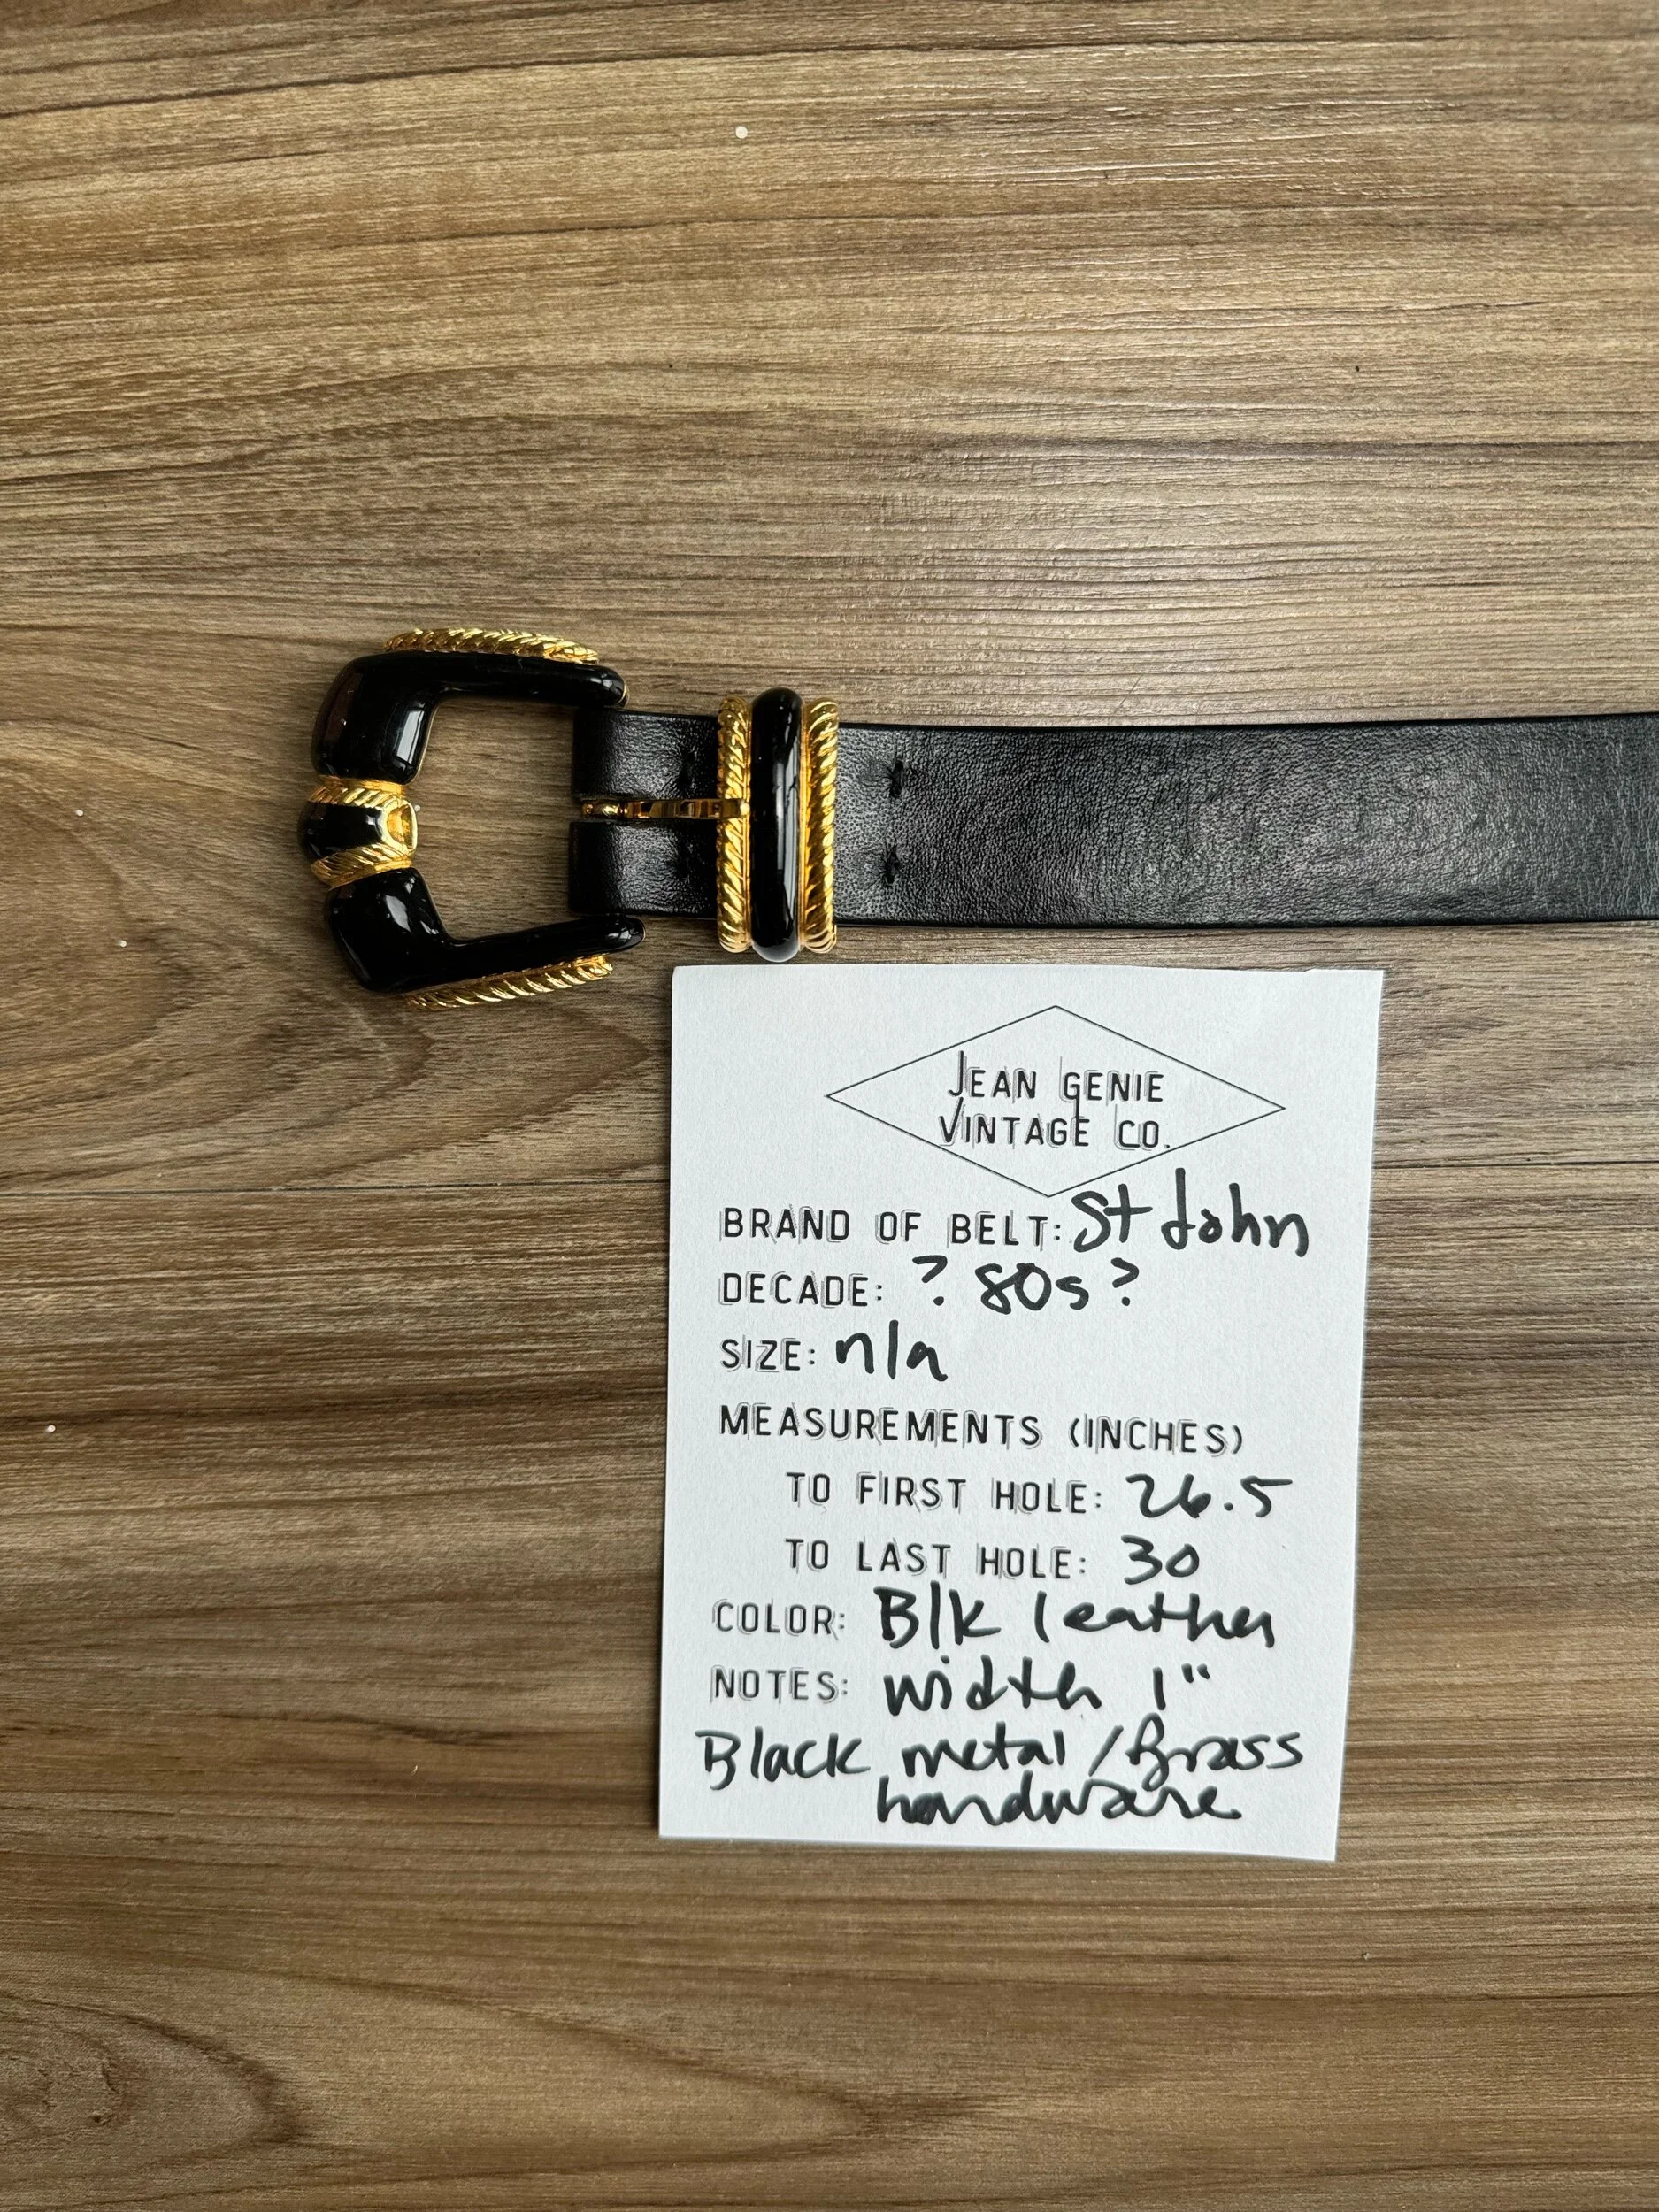 JEAN GENIE
VINTAGE CO.
BRAND OF BELT: St John
DECADE: ? 80s ?
SIZE: n/a
MEASUREMENTS (INCHES)
TO FIRST HOLE: 26.5
TO LAST HOLE: 30
COLOR: Blk leather
NOTES: width 1"
Black metal/Brass
hardware